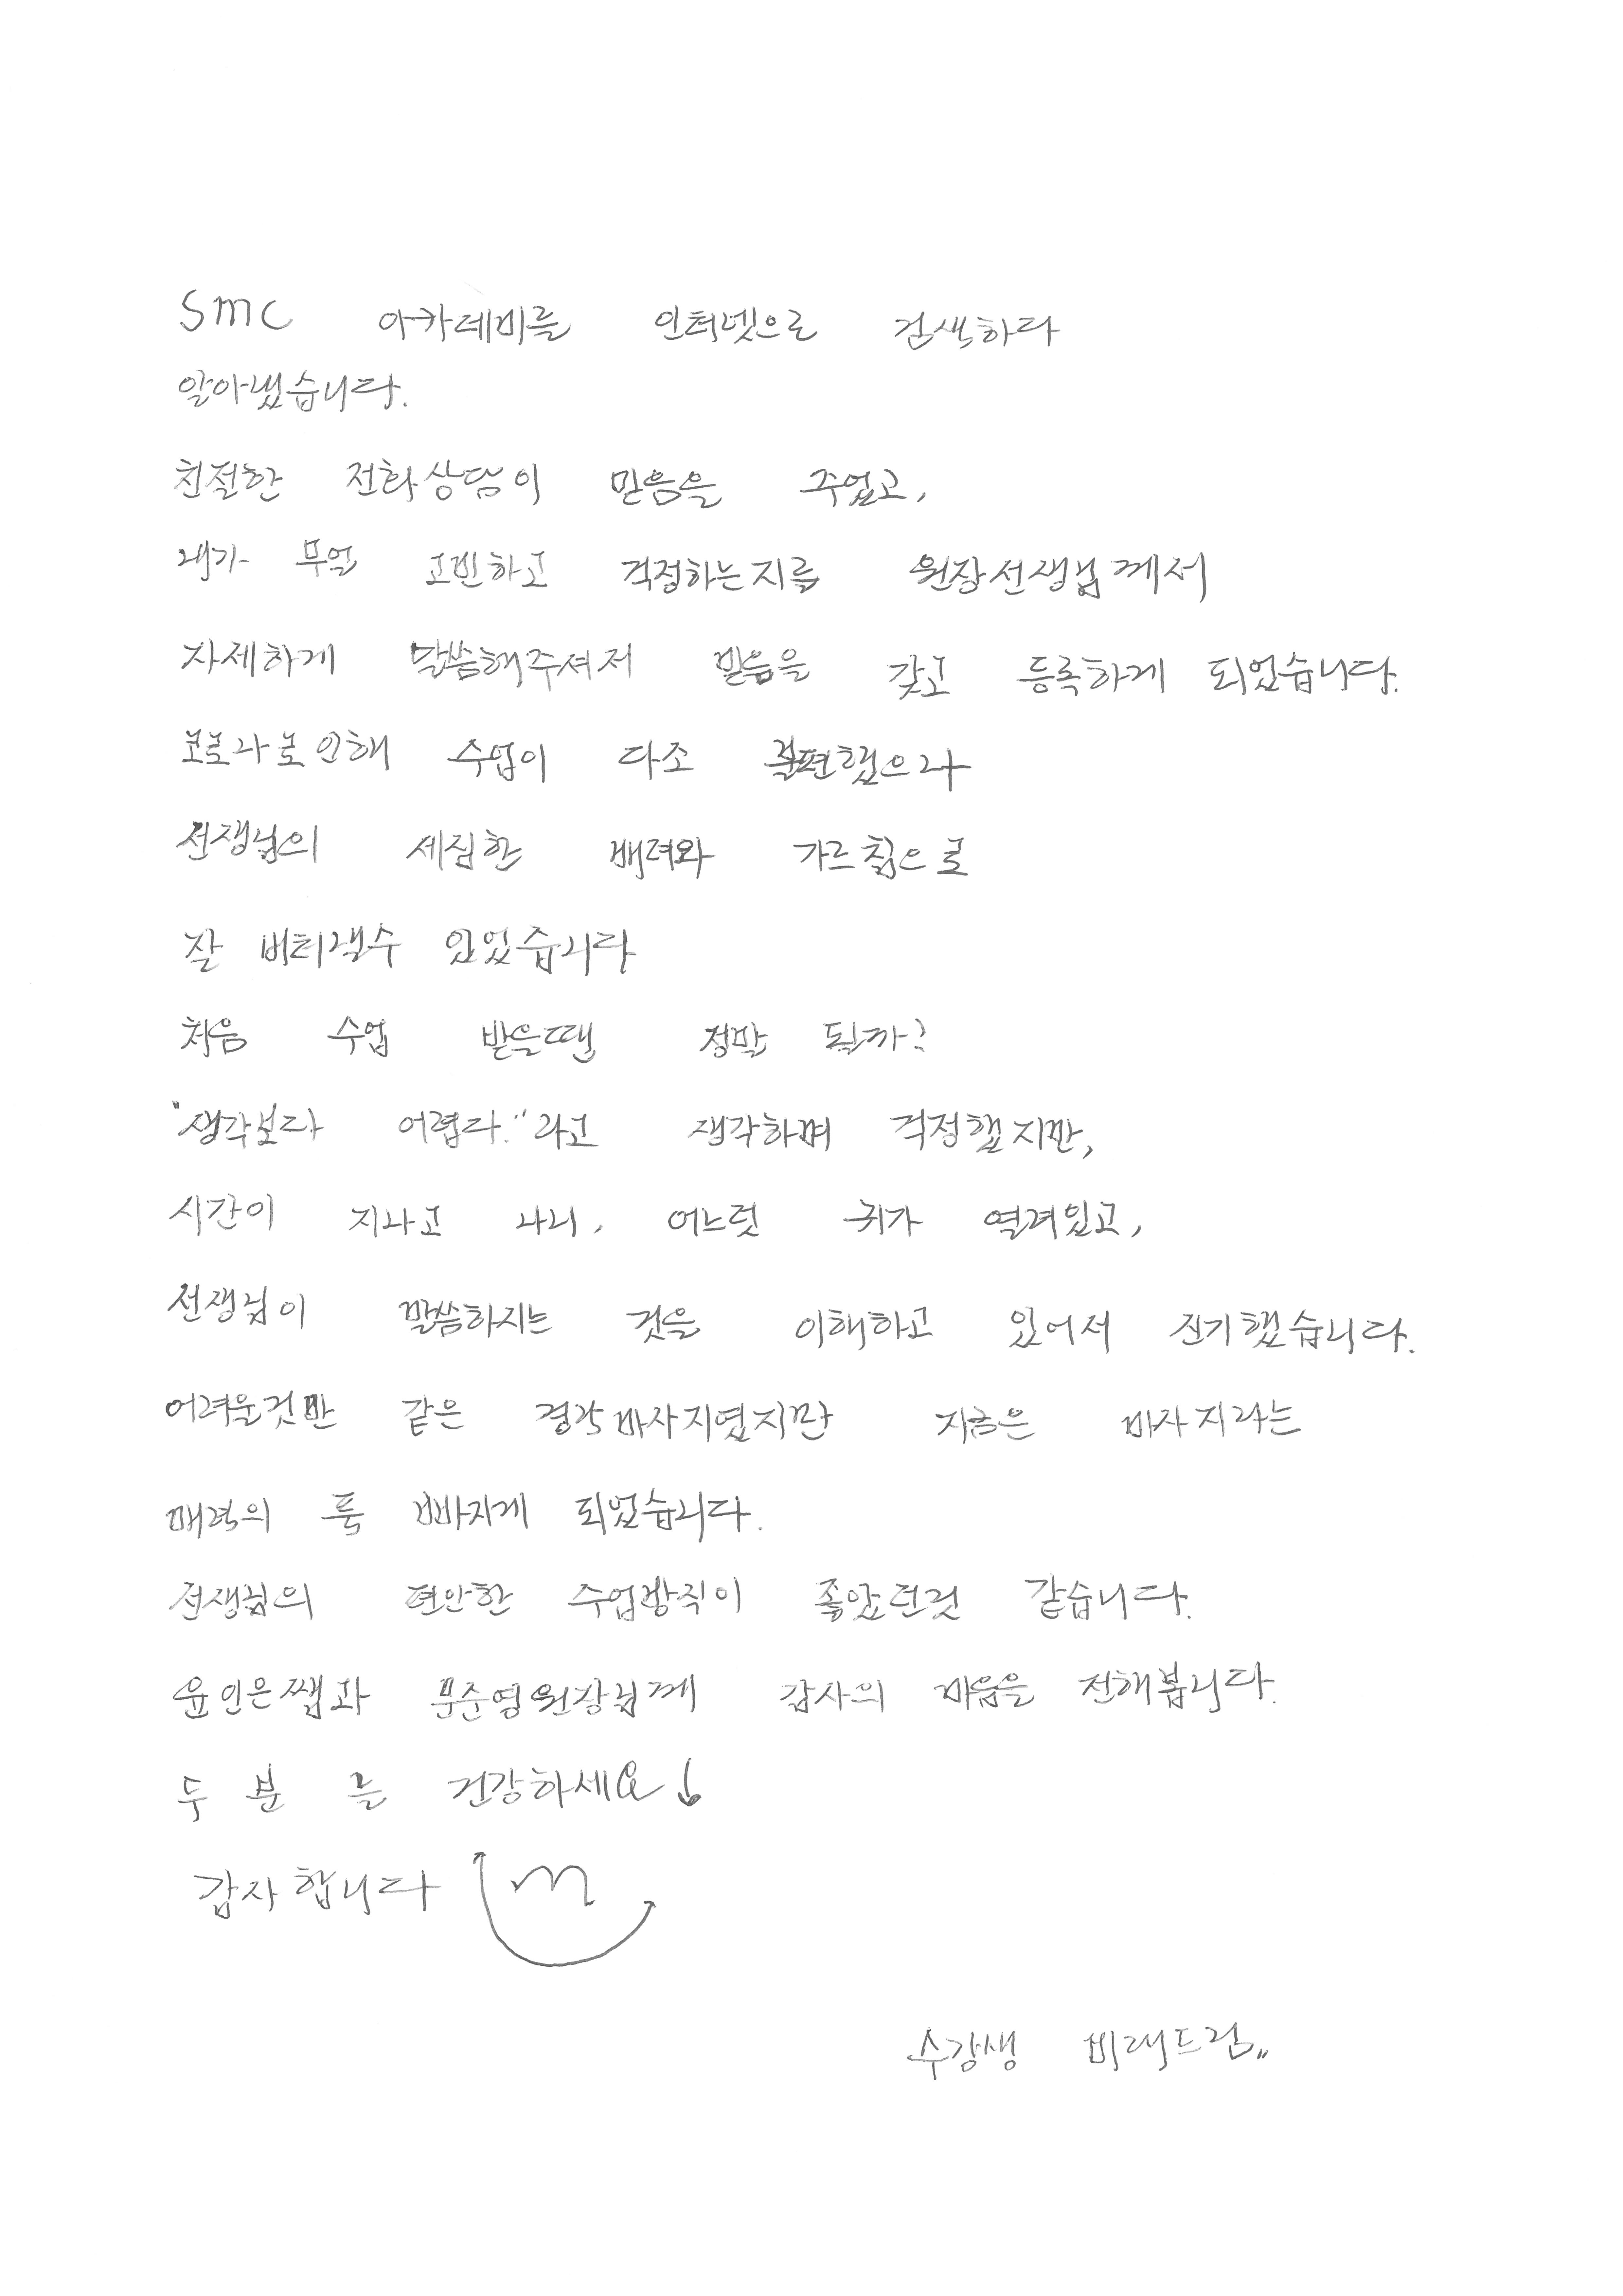 SMC 아카데미를 인터넷으로 검색하다
알아냈습니다.
친절한 전화상담이 믿음을 주었고,
내가 무얼 고민하고 걱정하는지를 원장선생님께서
자세하게 말씀해주셔저 믿음을 갖고 등록하게 되었습니다.
코로나로인해 수업이 다소 불편했으나
선생님의 세심한 배려와 가르침으로
잘 버티낼수 있었습니다
처음 수업 받을땐 정말 될까?
"생각보다 어렵다."라고 생각하며 걱정했지만,
시간이 지나고 나니, 어느덧 귀가 열려있고,
선생님이 말씀하시는 것을 이해하고 있어서 신기했습니다.
어려울것만 같은 경락마사지였지만 지금은 마사지라는
매력의 푹 빠지게 되었습니다.
선생님의 편안한 수업방식이 좋았던것 같습니다.
윤인은쌤과 문준영원장님께 감사의 마음을 전해봅니다.
두 분 늘 건강하세요!
감사합니다
수강생 드림"